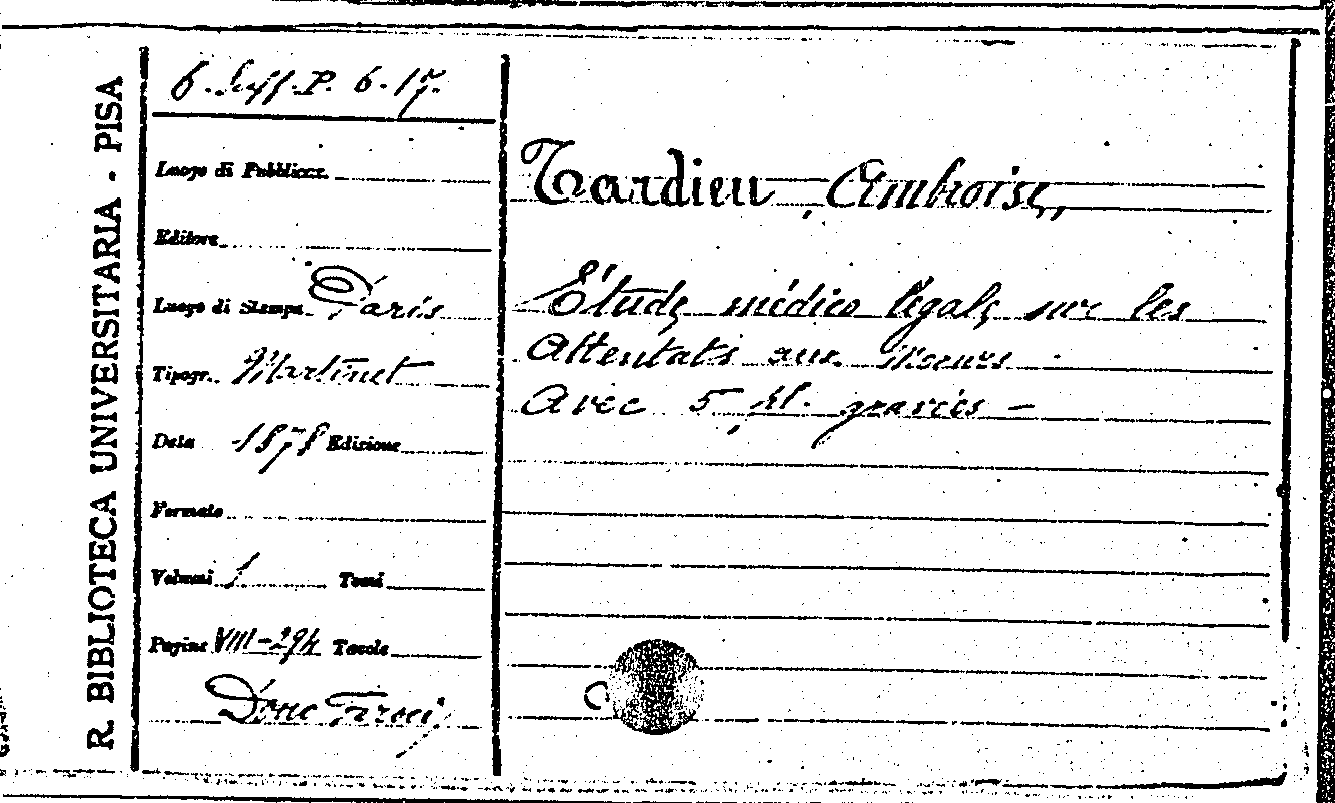 R. BIBLIOTECA UNIVERSITARIA - PISA
6. Suff. P. 6. 17.
Luogo di Pubblicaz.
Editore
Luogo di Stampa Paris
Tipogr. Martinet
Data 1878 Edizione
Formato
Volumi 1 Tomi
Pagine VIII-294 Tavole
Dono
Tardieu, Ambroise,
Étude médico légale sur les
Attentats aux Moeurs
Avec 5 pl. gravées -